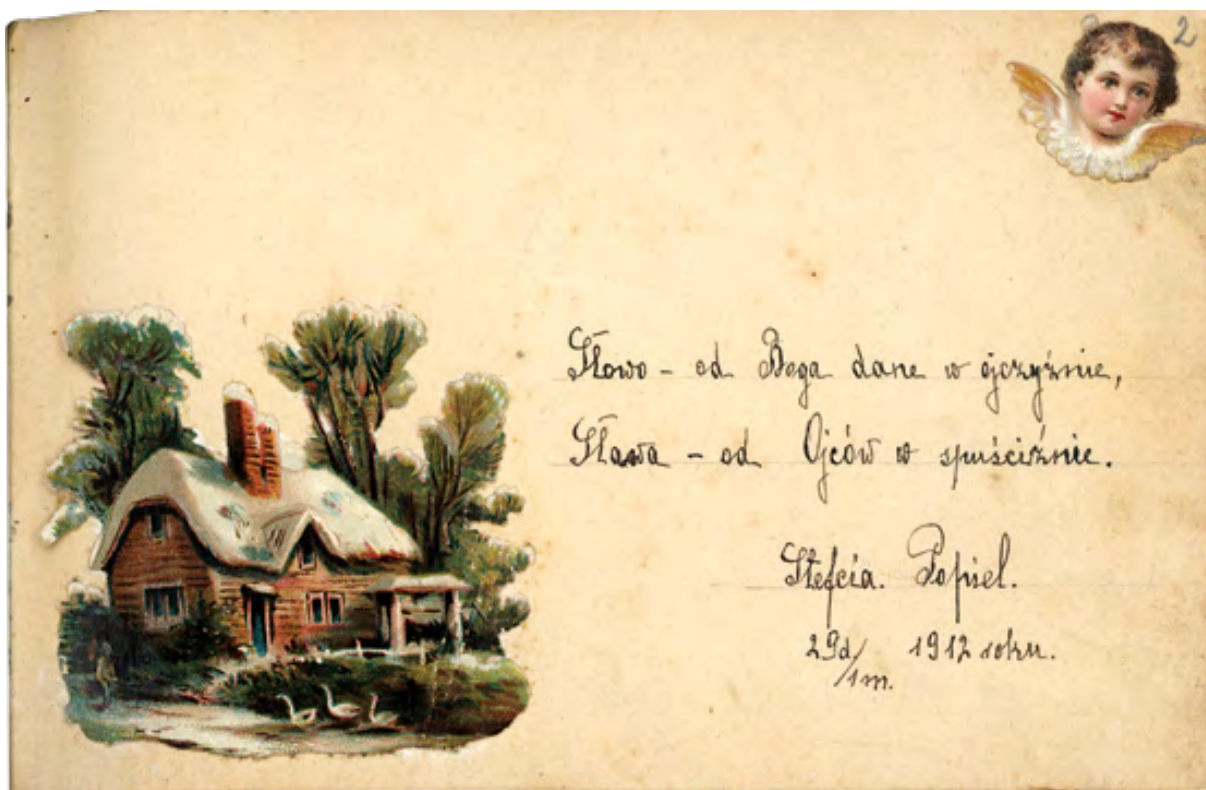 2
Słowo - od Boga dane w ojczyźnie,
Sława - od Ojców w spuściźnie.
Stefcia. Popiel.
29d/1m. 1912 roku.